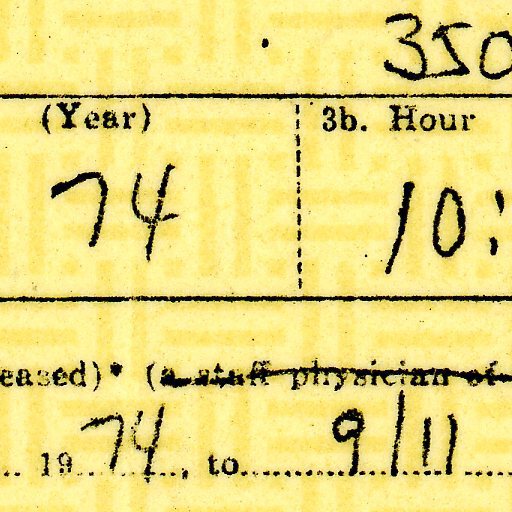 350
(Year) 3b. Hour
74 10:
eased)* (a staff physician of
19 74, to 9/11